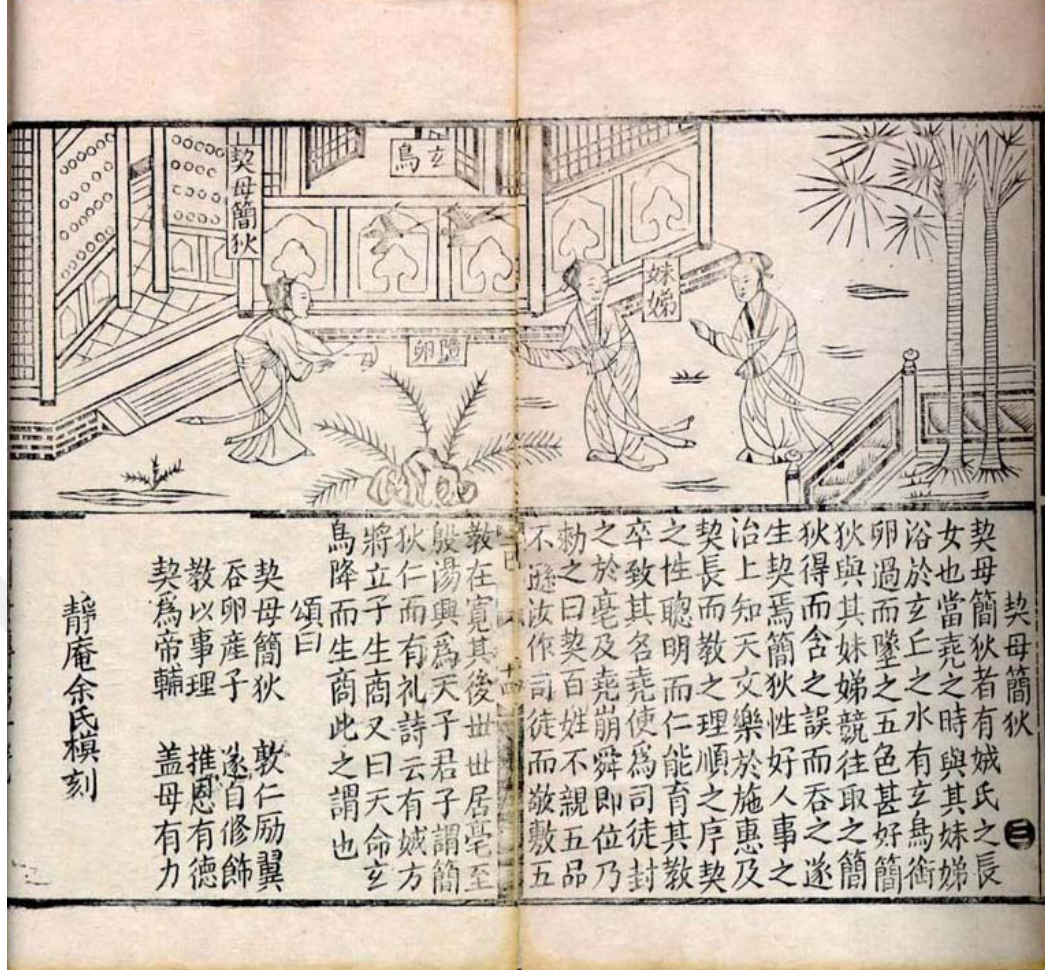 妹娣
玄鳥
卵
契母簡狄
契母簡狄
契母簡狄者有娀氏之長
女也當堯之時與其妹娣
浴於玄丘之水有玄鳥銜
卵過而墜之五色甚好簡
狄與其妹娣競往取之簡
狄得而含之誤而吞之遂
生契焉簡狄性好人事之
治上知天文樂於施惠及
契長而教之理順之序契
之性聰明而仁能育其教
卒致其名堯使爲司徒封
之於亳及堯崩舜即位乃
勑之曰契百姓不親五品
不遜汝作司徒而敬敷五
十四
教在寬其後世世居亳至
殷湯興爲天子君子謂簡
狄仁而有礼詩云有娀方
將立子生商又曰天命玄
鳥降而生商此之謂也
頌曰
契母簡狄 敦仁励翼
吞卵産子 遂自修飾
教以事理 推恩有德
契爲帝輔 盖母有力
靜庵余氏模刻